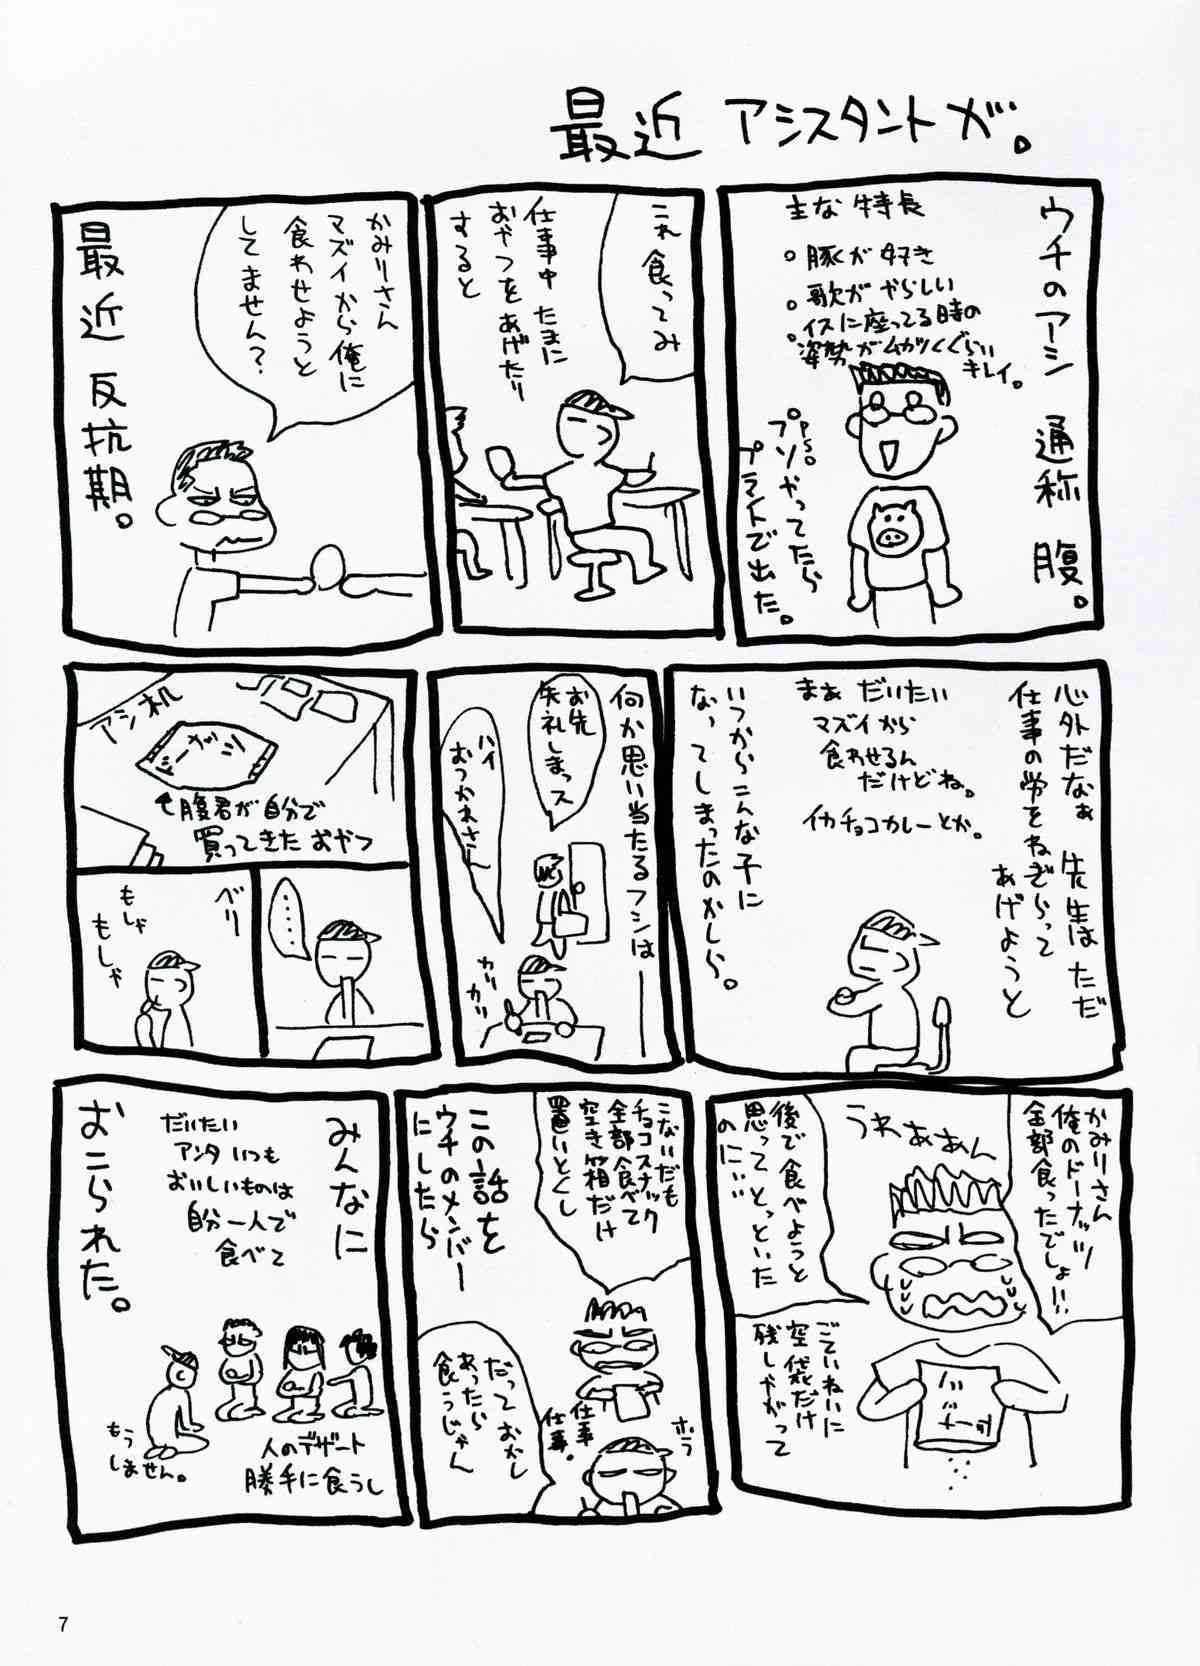 最近 アシスタントが。
ウチのアシ 通称 腹。
主な特長
。豚が好き
。歌がやらしい
。イスに座ってる時の
姿勢がムカツくぐらい
キレイ。
P.S.
プソやってたら
プライドで出た。
これ食ってみ
仕事中 たまに
おやつをあげたり
すると
かみりさん
マズイから俺に
食わせようと
してません?
最近 反抗期。
心外だなぁ 先生はただ
仕事の労をねぎらって
あげようと
まぁ だいたい
マズイから
食わせるん
だけどね。
イカチョコカレーとか。
いつからこんな子に
なってしまったのかしら。
何か思い当たるフシは
お先
失礼しまっス
ハイ
おつかれさん
カリカリ
アシ机
ガシー
↑腹君が自分で
買ってきた おやつ
‥‥‥
べリー
もしゃ
もしゃ
かみりさん
俺のドーナッツ
全部食ったでしょ!!
うわぁあぁん
後で食べようと
思ってとっといた
のに‥‥
ごていねいに
空袋だけ
残しやがって
こないだも
チョコスナック
全部食べて
空き箱だけ
置いとくし
この話を
ウチのメンバー
にしたら
だって おかし
あったら
食うじゃん
仕事
仕事。
ホラ
みんなに
だいたい
アンタ いつも
おいしいものは
自分一人で
食べて
人のデザート
勝手に食うし
もう
しません。
おこられた。
7